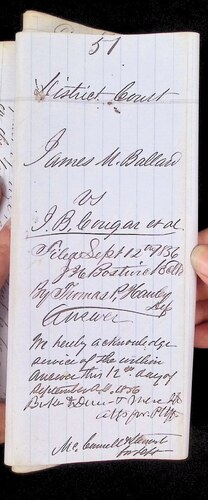 51
District Court
James M. Ballard
vs
J. B. Cougar et al
Filed Sept 12th 1856
J. H. Bostwick Clk
By Thomas P. Hawley
Answer
We hereby acknowledge
service of the within
Answer this 12th day of
September A.D. 1856
attys for Plffs